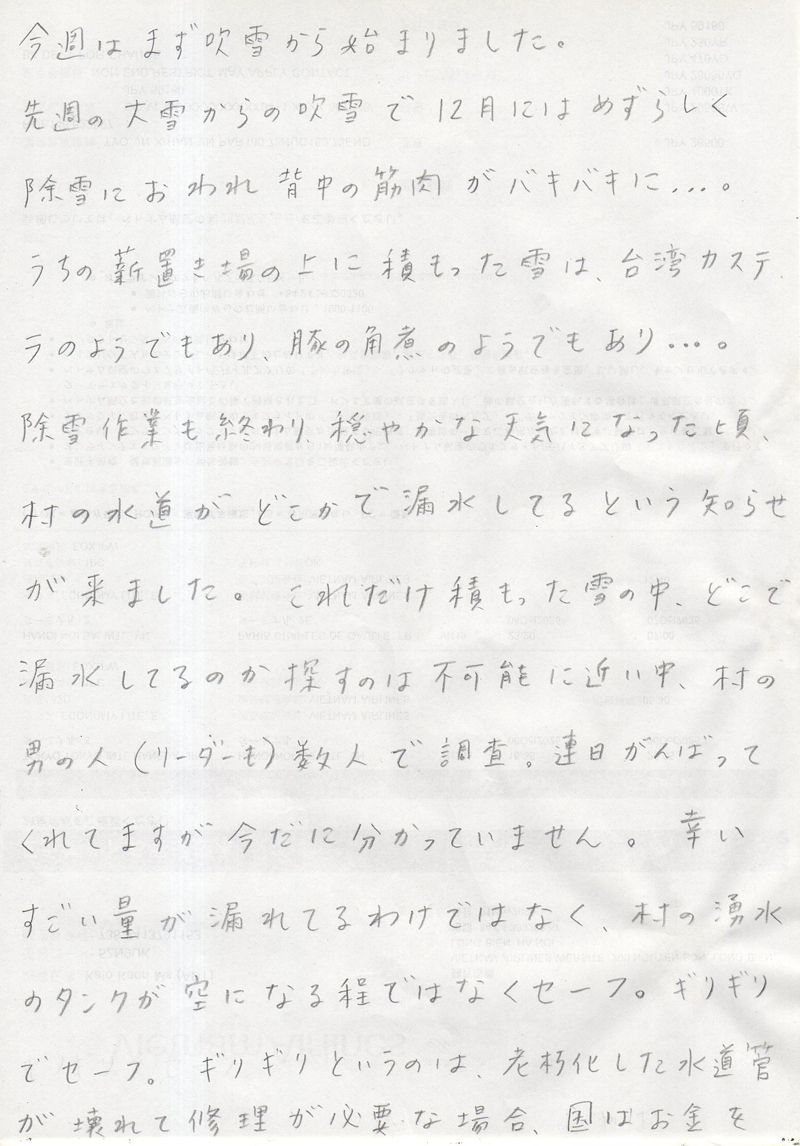 今週はまず吹雪から始まりました。
先週の大雪からの吹雪で12月にはめずらしく
除雪におわれ背中の筋肉がバキバキに...。
うちの薪置き場の上に積もった雪は、台湾カステ
ラのようでもあり、豚の角煮のようでもあり...。
除雪作業も終わり、穏やかな天気になった頃、
村の水道がどこかで漏水してるという知らせ
が来ました。これだけ積もった雪の中、どこで
漏水してるのか探すのは不可能に近い中、村の
男の人(リーダーも)数人で調査。連日がんばって
くれてますが今だに分かっていません。幸い
すごい量が漏れてるわけではなく、村の湧水
のタンクが空になる程ではなくセーフ。ギリギリ
でセーフ。ギリギリというのは、老朽化した水道管
が壊れて修理が必要な場合、国はお金を